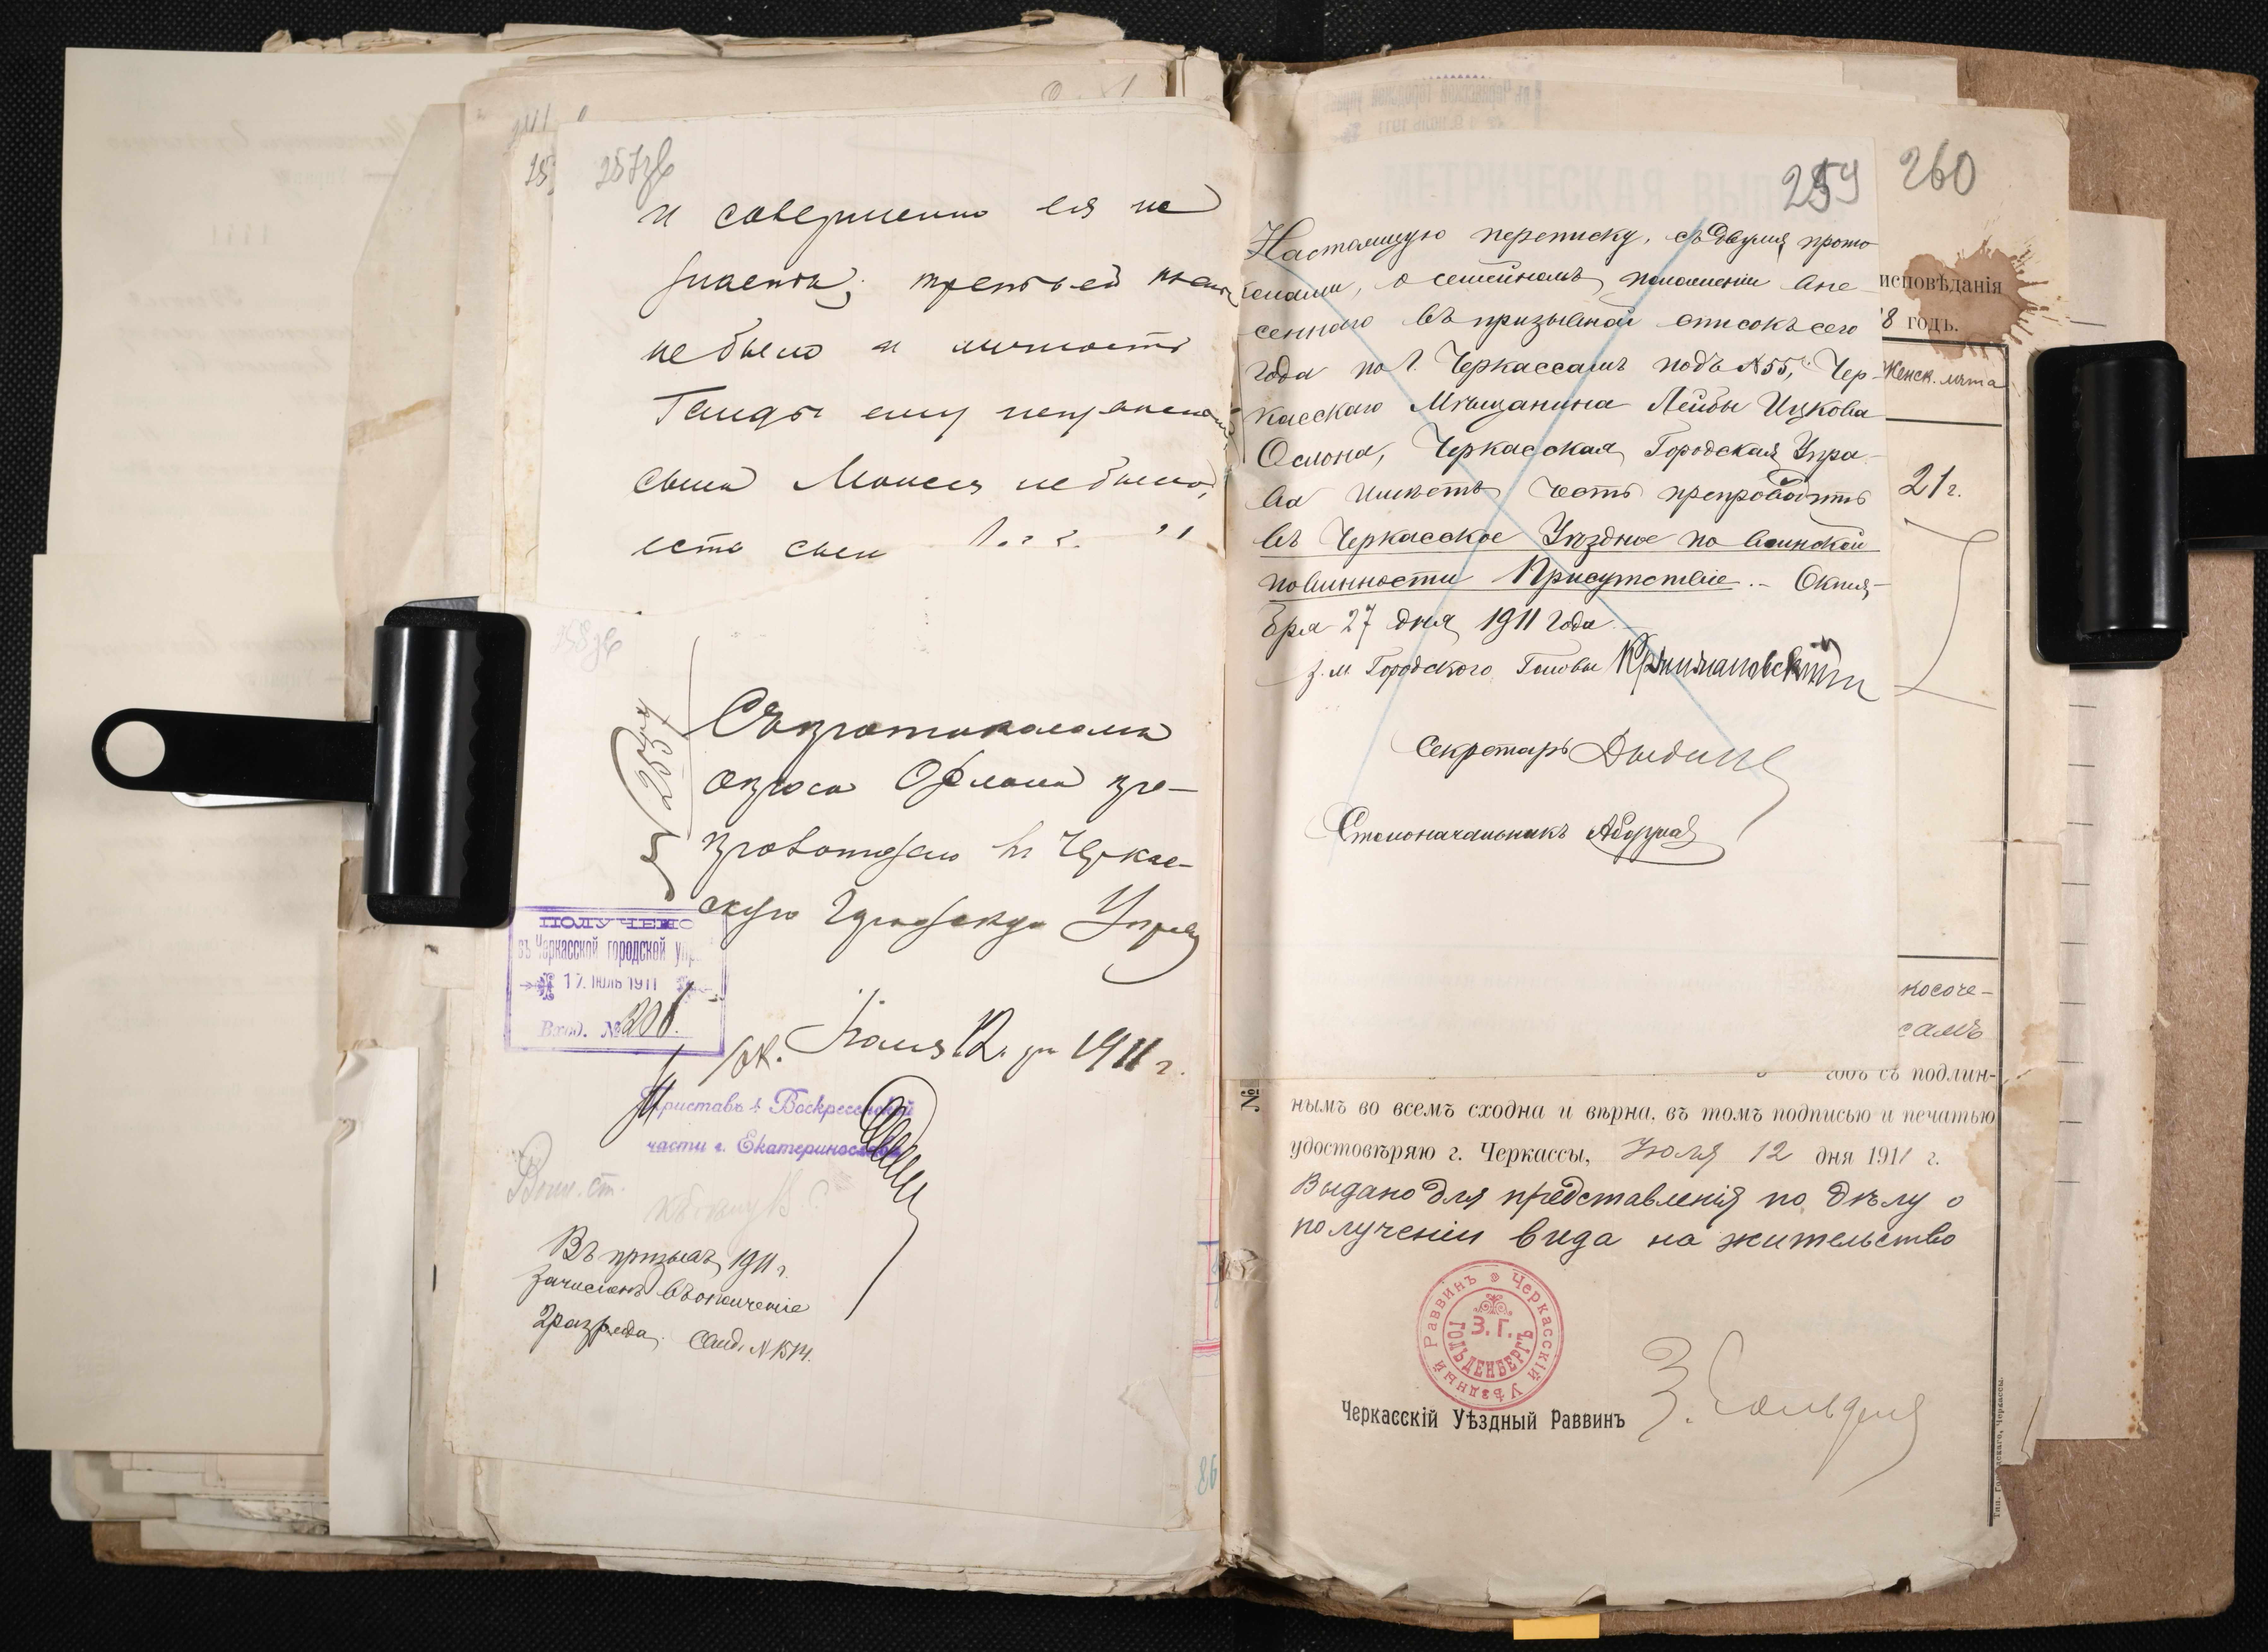 257 об
и совершенно ея не
знаетъ; третьей жены
не было и личность
ему неизвестна
сына Моисея не было,
есть сынъ
258 об
Съ протоколомъ
опроса Ослона пре-
провождаю въ Черкас-
скую Городскую Управу
ПОЛУЧЕНО
въ Черкасской городской упр.
17. ІЮЛЬ 1911
Вход. №
Іюля 12 дня 1911 г.
Приставъ 4 Воскресенской
части г. Екатеринослава
Воин. ст.
Въ призывъ 1911 г.
зачисленъ въ ополченіе
2 разряда. Свид. № 1514.
259
260
Настоящую переписку, съ двумя прото
колами, о семейномъ положеніи вне
сеннаго въ призывной списокъ сего
года по г. Черкассамъ подъ № 55, Чер
касскаго Мѣщанина Лейбы Ицкова
Ослона, Черкасская Городская Упра-
ва имѣетъ честь препроводить
въ Черкасское Уѣздное по воинской
повинности Присутствіе. – Октя-
бря 27 дня 1911 года.
з. м. Городского Головы
Секретарь
Столоначальникъ
исповѣданія
8 годъ.
Женск. лѣта
21 г.
косоче-
самъ
годъ съ подлин-
нымъ во всемъ сходна и вѣрна, въ томъ подписью и печатью
удостовѣряю г. Черкассы, Іюля 12 дня 1911 г.
Выдано для представленія по дѣлу о
полученіи вида на жительство
Черкасскій Уѣздный Раввинъ
З. Г.
ГОЛЬДЕНБЕРГЪ
Черкасскій Уѣздный Раввинъ
86